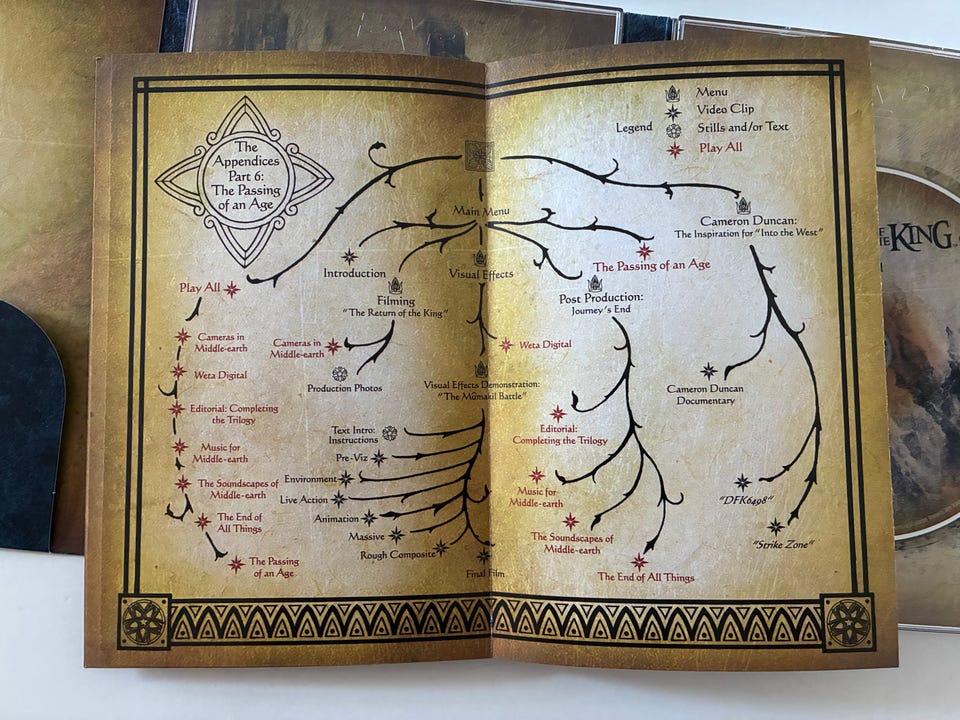 The
Appendices
Part 6:
The Passing
of an Age
Legend
Menu
Video Clip
Stills and/or Text
Play All
Main Menu
Play All
Cameras in
Middle-earth
Weta Digital
Editorial: Completing
the Trilogy
Music for
Middle-earth
The Soundscapes of
Middle-earth
The End of
All Things
The Passing
of an Age
Introduction
Filming
"The Return of the King"
Cameras in
Middle-earth
Production Photos
Visual Effects
Weta Digital
Visual Effects Demonstration:
"The Mûmakil Battle"
Text Intro:
Instructions
Pre-Viz
Environment
Live Action
Animation
Massive
Rough Composite
Final Film
The Passing of an Age
Post Production:
Journey's End
Editorial:
Completing the Trilogy
Music for
Middle-earth
The Soundscapes of
Middle-earth
The End of All Things
Cameron Duncan:
The Inspiration for "Into the West"
Cameron Duncan
Documentary
"DFK6498"
"Strike Zone"
KING